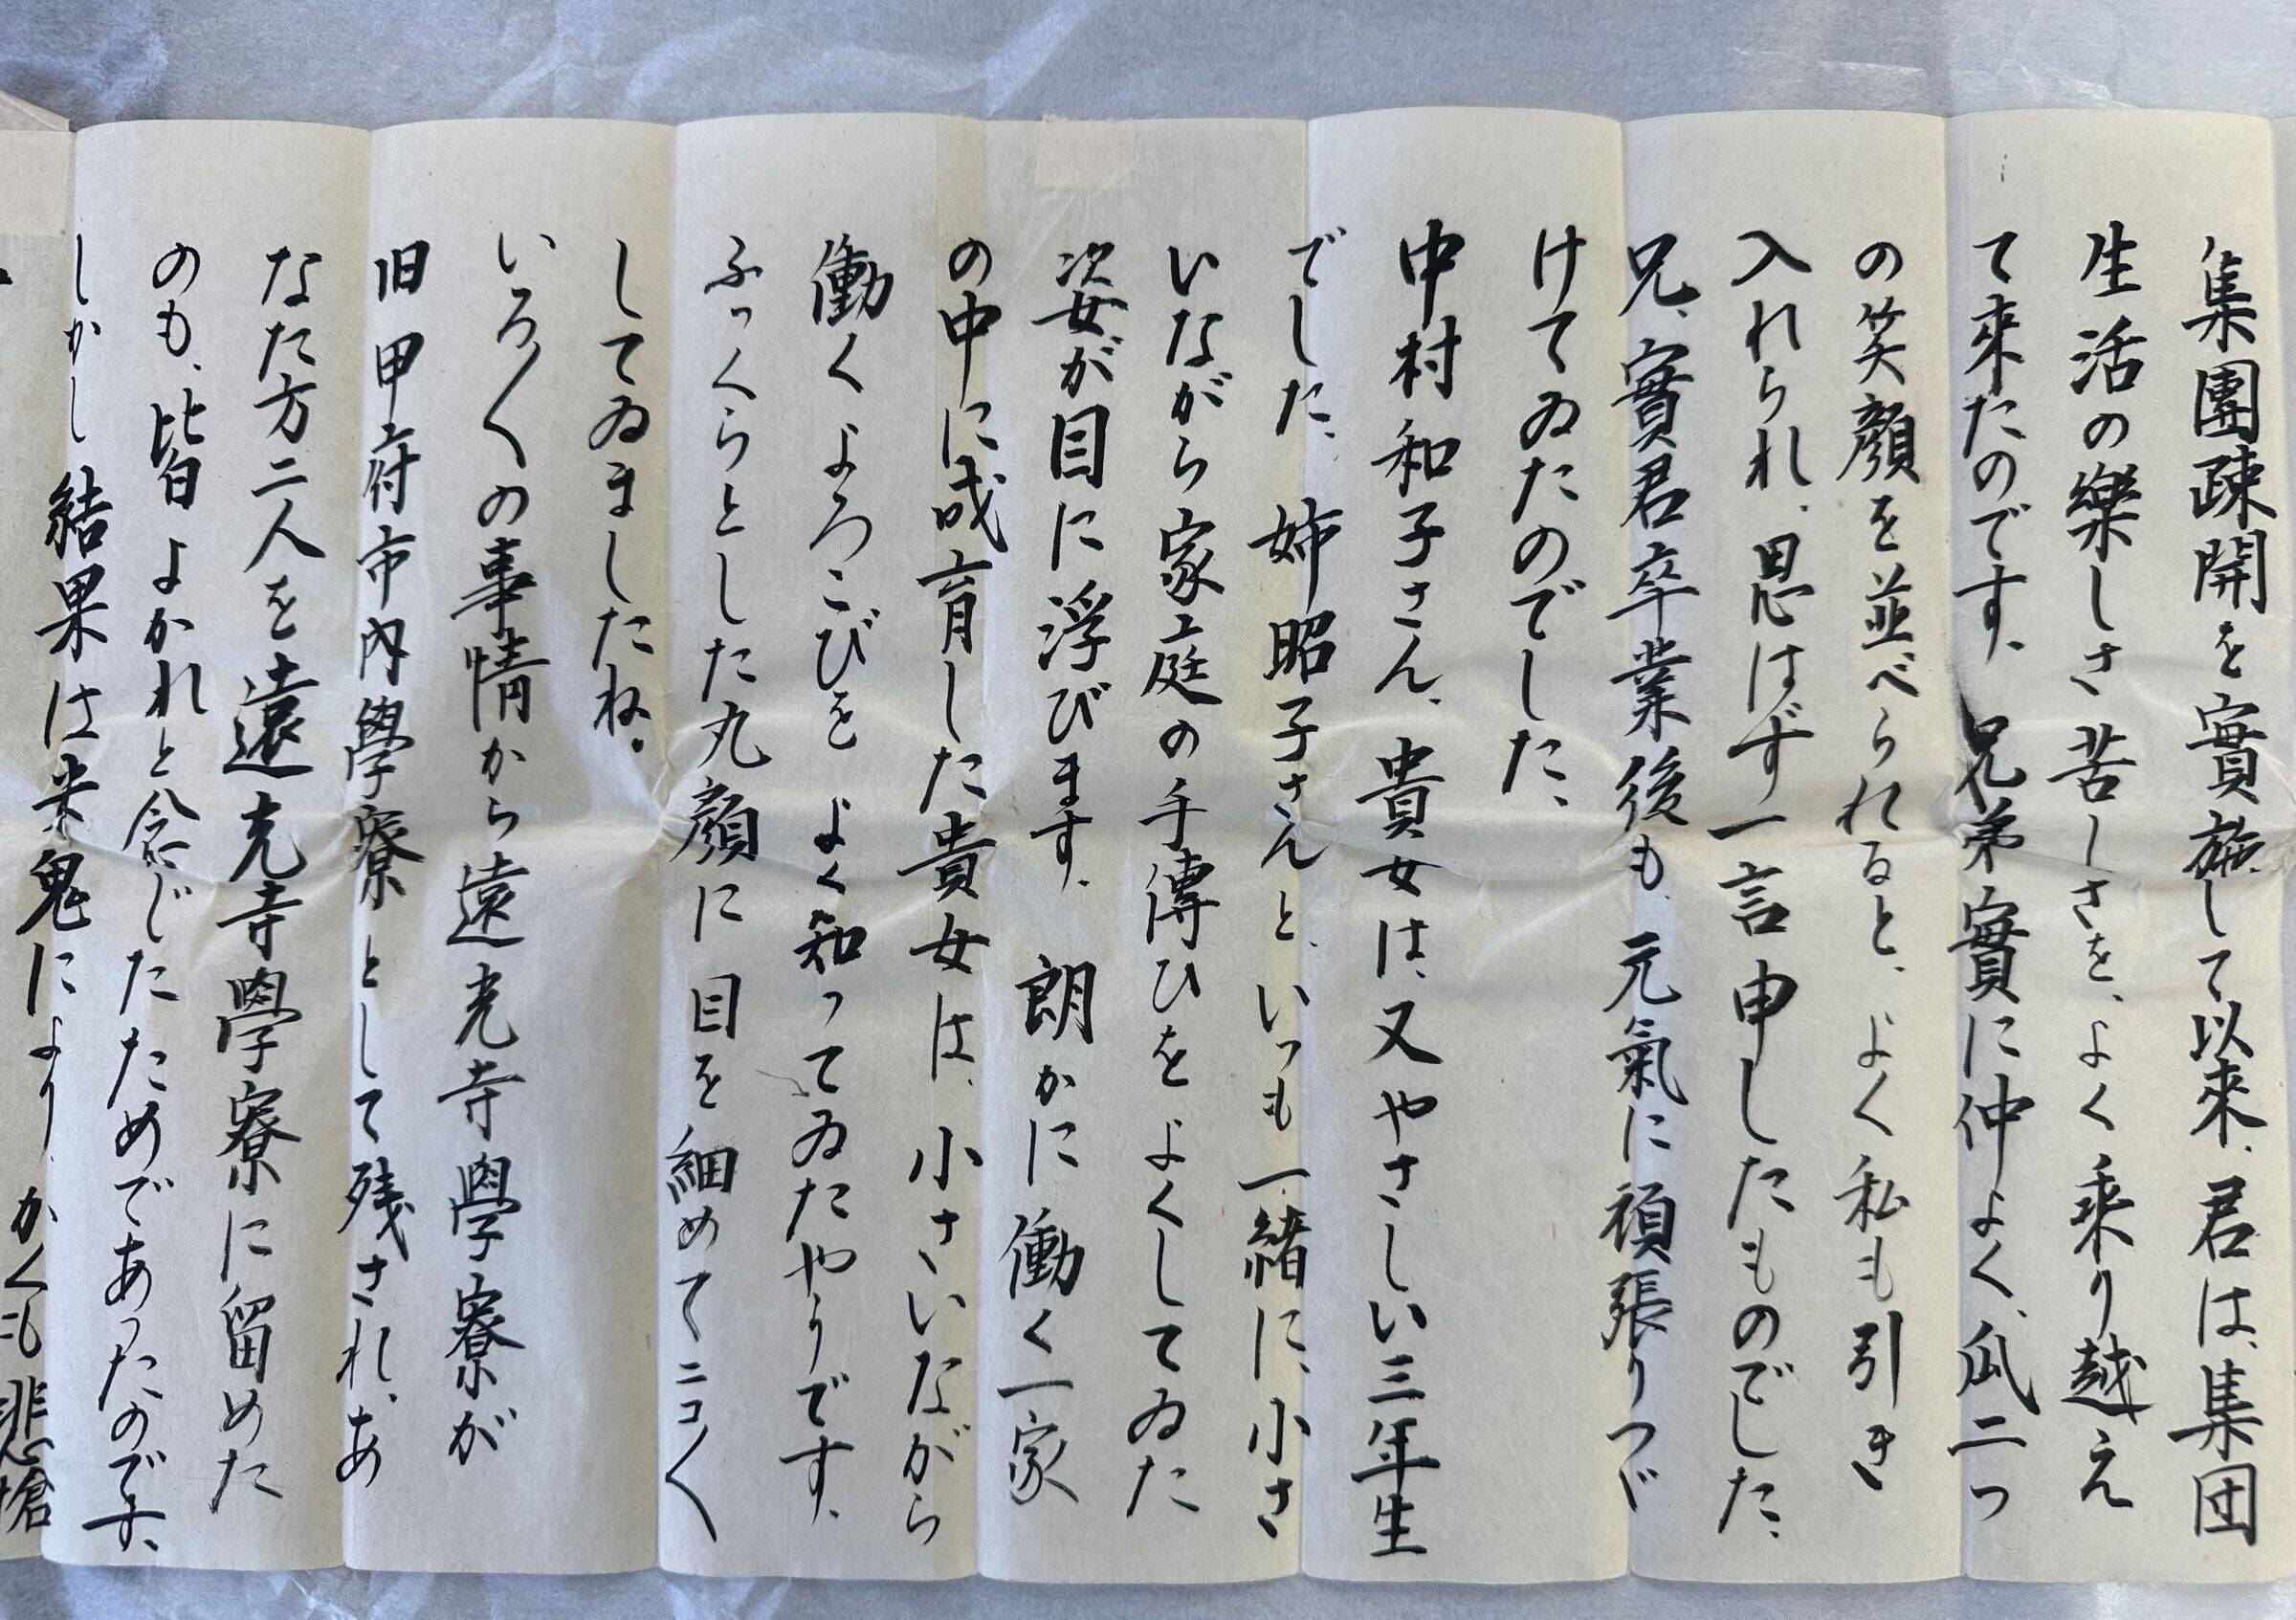 集團疎開を實施して以来、君は、集団
生活の樂しさ苦しさを、よく乗り越え
て來たのです、兄弟實に仲よく、瓜二つ
の笑顔を並べられると、よく私も引き
入れられ、思はず一言申したものでした、
兄、實君卒業後も、元氣に頑張りつゞ
けてゐたのでした、
中村和子さん、貴女は、又やさしい三年生
でした、姉昭子さんと、いつも一緒に、小さ
いながら家庭の手傳ひをよくしてゐた
姿が目に浮びます、朗かに働く一家
の中に成育した貴女は、小さいながら
働くよろこびをよく知ってゐたやうです、
ふっくらとした丸顔に目を細めてニコ〱
してゐましたね。
いろ〱の事情から遠光寺學寮が
旧甲府市内學寮として残され、あ
なた方二人を遠光寺學寮に留めた
のも、皆よかれと念じたためであったのです、
しかし結果は米鬼により、かくも悲愴